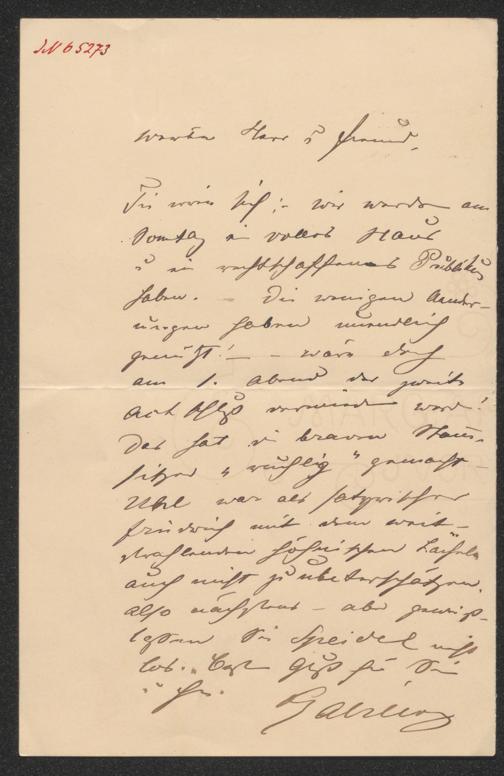 JN 65273
werter Herr u Freund,
wir werden am
Sonntag ein volles Haus
u ein rechtschaffenes Publikum
haben. – Die wenigen Aender-
ungen haben unendlich
genützt! – – wäre doch
am 1. Abend der zweite
Act vermieden word!
Das hat die braven Haus-
sitzer „ruhig" gemacht –
Uhl war als satyrischer
Friedrich mit dem weit-
strahlenden höhnischen Lächeln
auch nicht zu überschätzen.
also nächstens – aber gewiss –
lassen Sie Speidel nicht
los. Beste Grüße für Sie
u
Gabillon